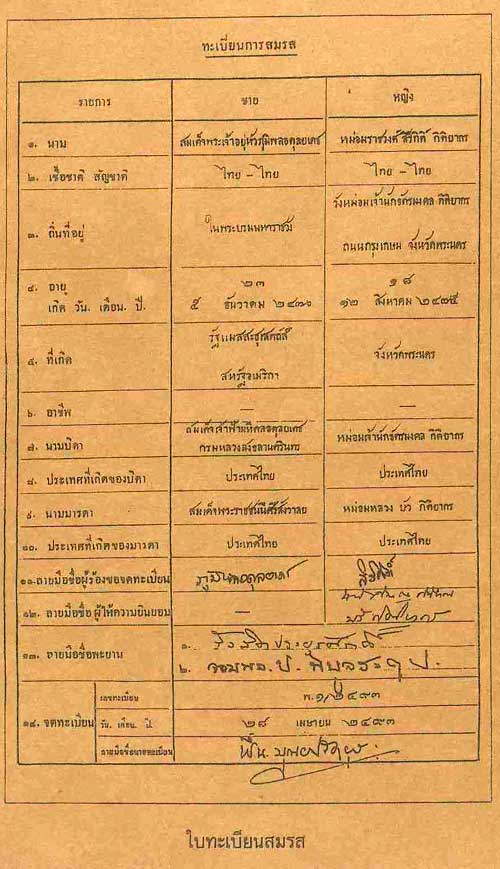 ทะเบียนการสมรส
รายการ ชาย หญิง
๑. นาม สมเด็จพระเจ้าอยู่หัวภูมิพลอดุลยเดช หม่อมราชวงศ์ สิริกิติ์ กิติยากร
๒. เชื้อชาติ สัญชาติ ไทย - ไทย ไทย - ไทย
วังหม่อมเจ้านักขัตรมงคล กิติยากร
๓. ถิ่นที่อยู่ ในพระบรมมหาราชวัง
ถนนกรุงเกษม จังหวัดพระนคร
๔. อายุ ๒๓ ๑๘
เกิด วัน. เดือน. ปี. ๕ ธันวาคม ๒๔๗๐ ๑๒ สิงหาคม ๒๔๗๕
รัฐแมสสะชูเสตส์
๕. ที่เกิด จังหวัดพระนคร
สหรัฐอเมริกา
๖. อาชีพ —
สมเด็จเจ้าฟ้ามหิดลอดุลยเดช
๗. นามบิดา กรมหลวงสงขลานครินทร์ หม่อมเจ้านักขัตรมงคล กิติยากร
๘. ประเทศที่เกิดของบิดา ประเทศไทย ประเทศไทย
๙. นามมารดา สมเด็จพระราชชนนีศรีสังวาลย์ หม่อมหลวง บัว กิติยากร
๑๐. ประเทศที่เกิดของมารดา ประเทศไทย ประเทศไทย
๑๑. ลายมือชื่อผู้ร้องขอจดทะเบียน ภูมิพลอดุลยเดช สิริกิติ์
๑๒. ลายมือชื่อ ผู้ให้ความยินยอม —
๑๓. ลายมือชื่อพยาน ๑. รังสิตประยูรศักดิ์
๒. จอมพล ป. พิบูลสงคราม
เลขทะเบียน พ.๑/๒๔๙๓
๑๔. จดทะเบียน วัน. เดือน. ปี. ๒๘ เมษายน ๒๔๙๓
ลายมือชื่อนายทะเบียน ฟื้น บุณยปรัตยุธ
ใบทะเบียนสมรส